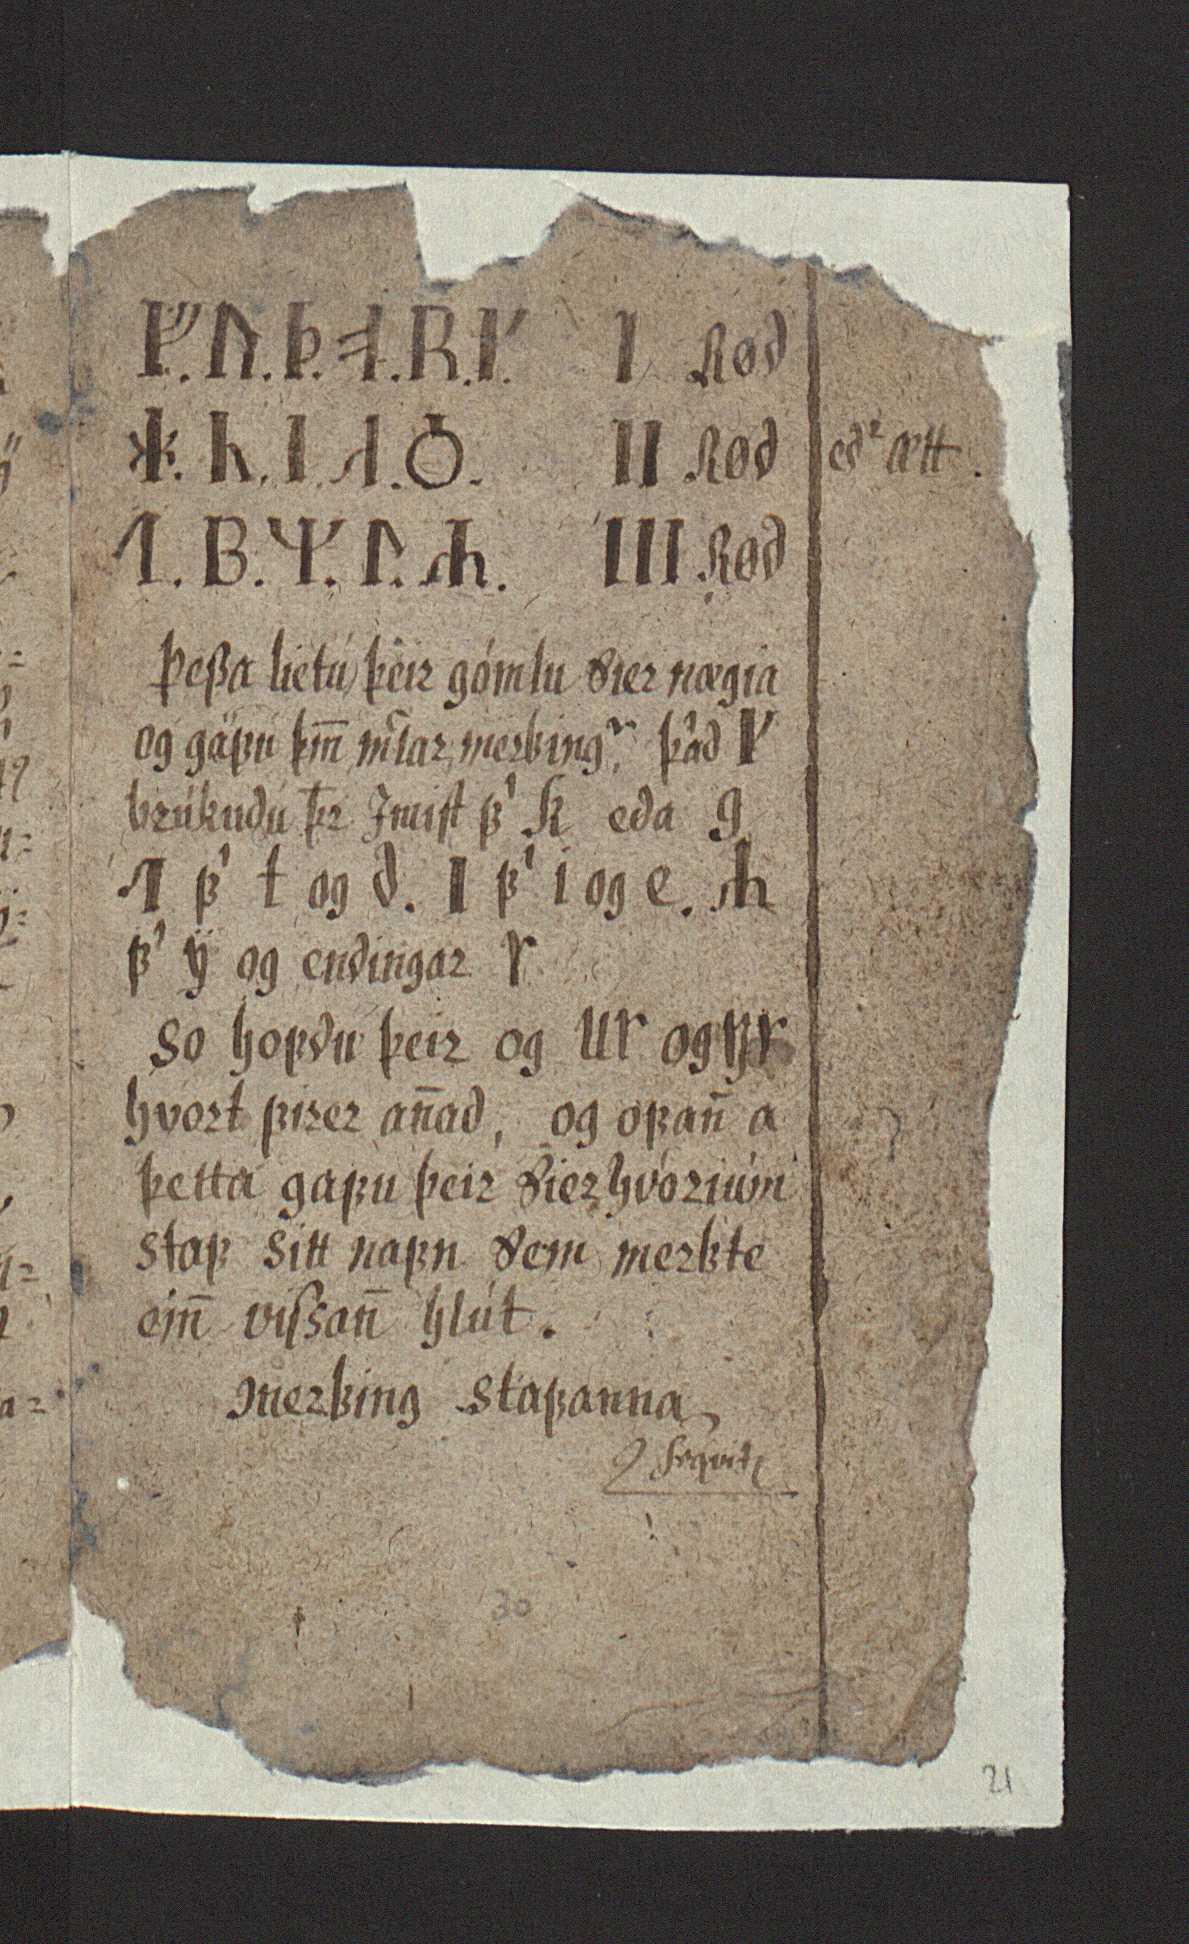 ᚠ. ᚢ. ᚦ. ᚭ. ᚱ. ᚴ. I Rød
ᚼ. ᚿ. ᛁ. ᛆ. ᛋ. II Rød edr ætt.
ᛏ. ᛒ. ᛘ. ᛚ. ᛦ. III Rød
Þeßa lietu þeir gömlu sier nægia
og gäfu þm̅ merkingr, þad ᚴ
brükudu þr Jmist f' k eda g
ᛆ f' t og d. ᛁ f' i og e. ᛦ
f' ÿ og endingar r
So hofdu þeir og ur og yr
hvort firer an̅ad, og ofan̅ a
þetta gafu þeir sier hvöriüm
staf sitt nafn sem merkte
ein̅ vissan̅ hlut.
Merking Stafanna
Seqvit
30
21